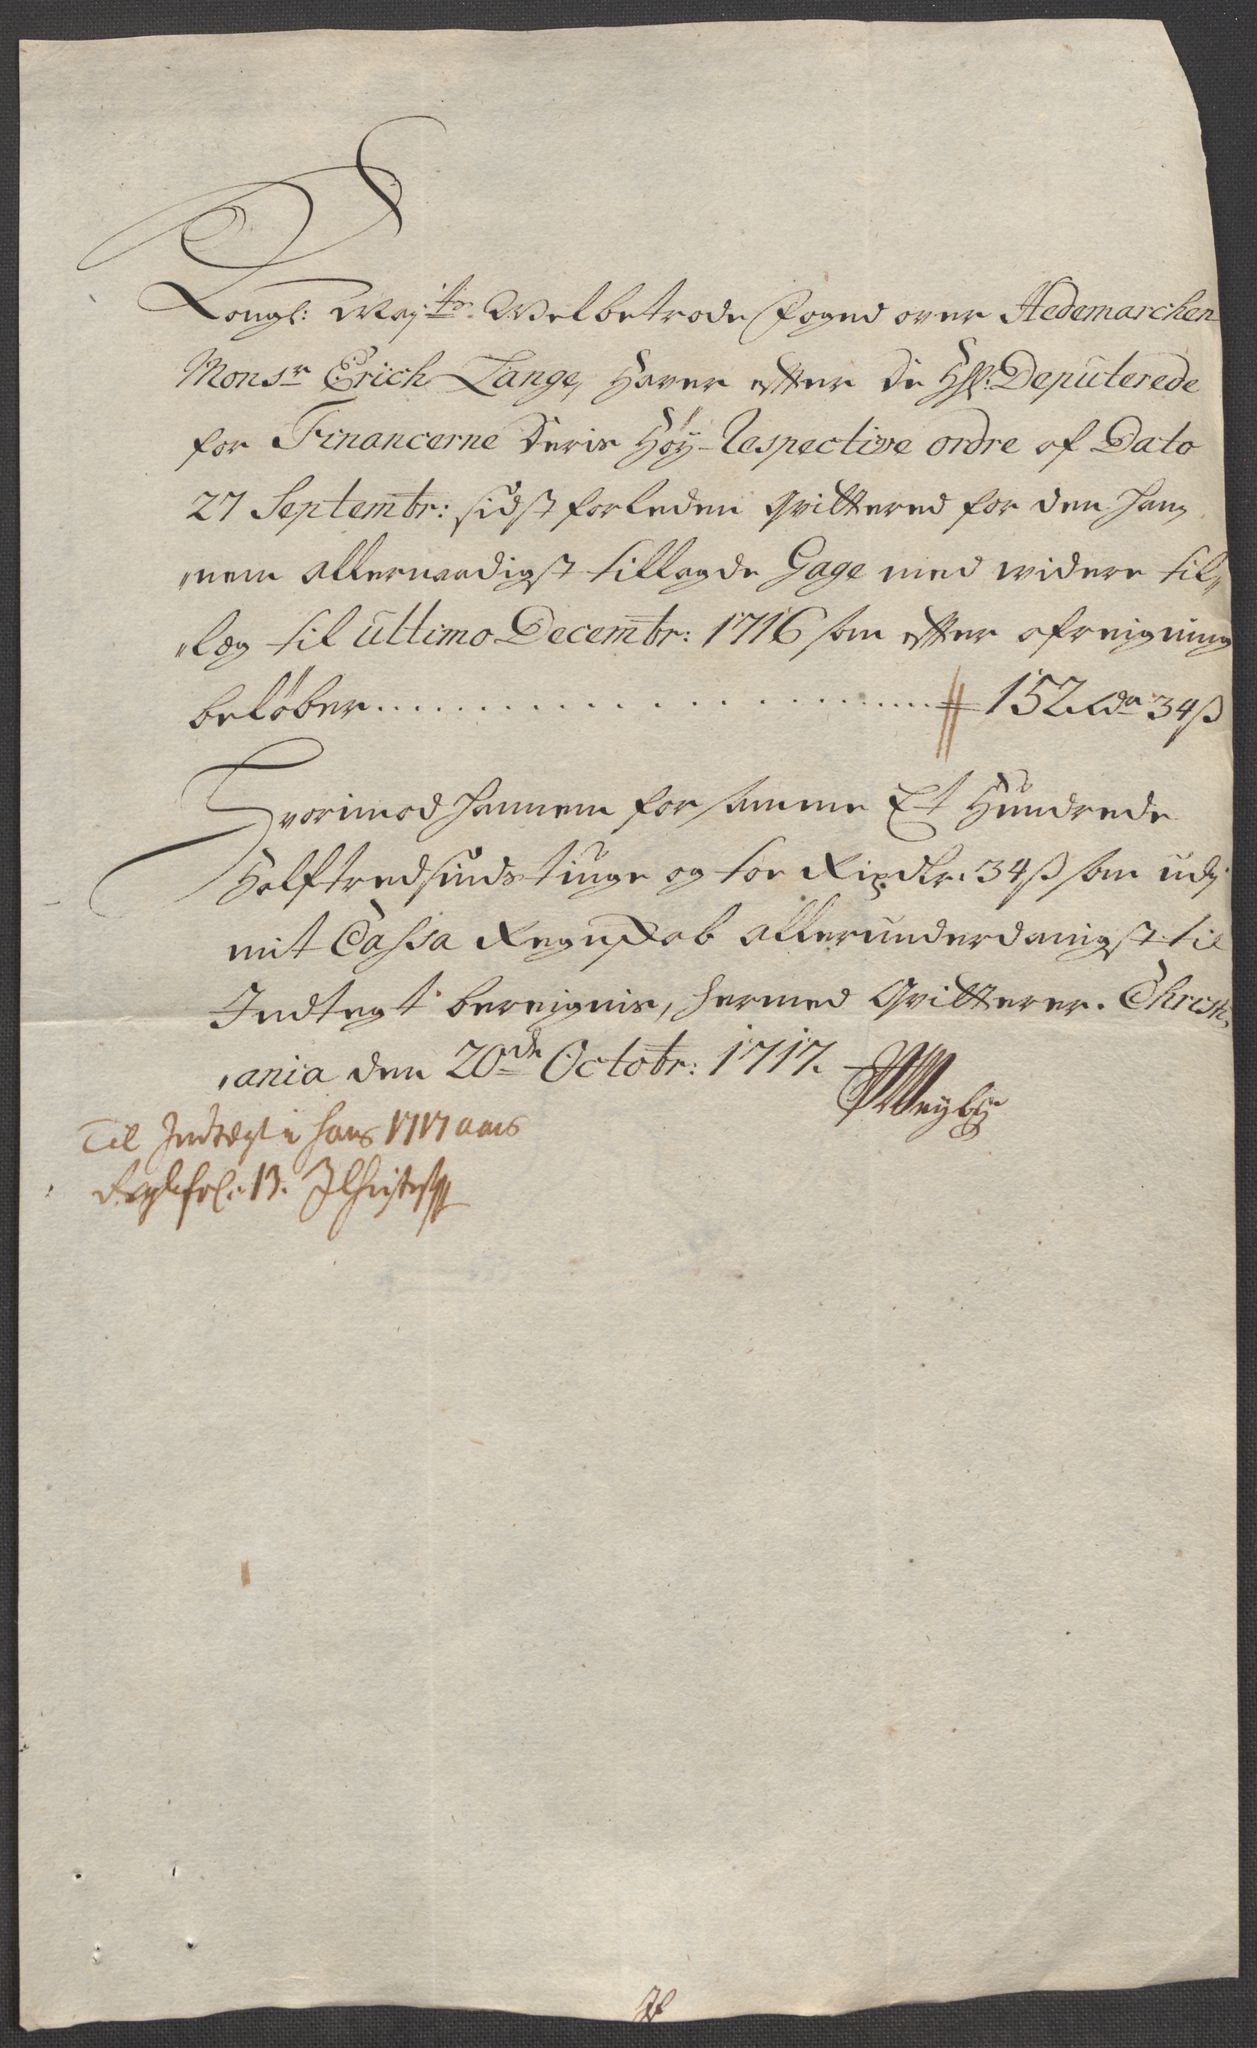 Kongl: May:ts Welbetrode Foged over Hedemarchen
Monsr Erich Lange, Haver efter de HH: Deputerede
for Financerne deris Høy-Respective ordre af Dato
27 Septembr: sidst forleden qvittered for den han,
,,nem allernaadigst tillagde Gage med widere til,,
,,leg til ultimo Decembr: 1716 som efter afreigning
beløber . . . . . . . . . . . . . . . . . . 152 Rdr 34 ß
Hvorimod hannem for samme Et Hundrede
Halftredsindstiuge og toe Rixdlr: 34 ß som udj
mit Cassa Regnskab allerunderdanigst til
Indtegt bereignis, hermed Qvitterer. Christi,
,ania den 20de Octobr: 1717.
Til Indtegt i hans 1717 aars
fol: 13.